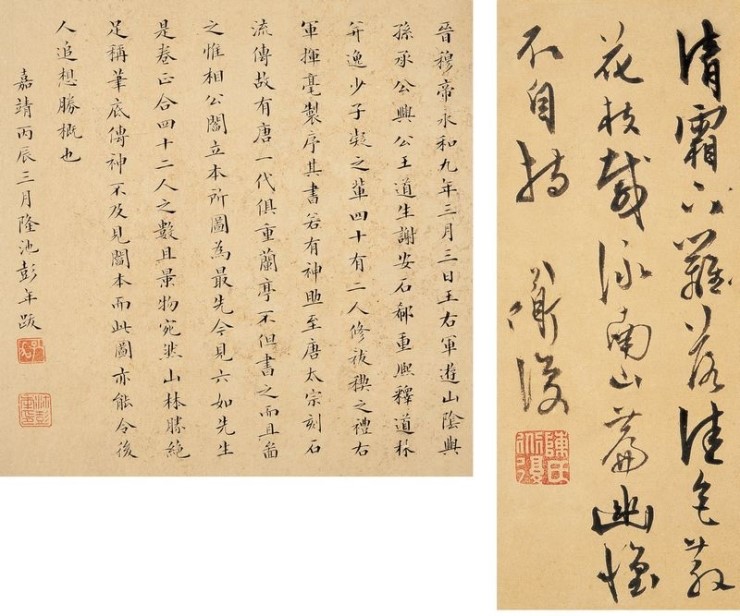 晉穆帝永和九年三月三日王右軍遊山陰與
孫承公興公王道生謝安石郗重熙釋道林
弁逸少子凝之輩四十有二人修祓禊之禮右
軍揮毫製序其書若有神助至唐太宗刻石
流傳故有唐一代俱重蘭亭不但書之而且啚
之惟相公閻立本所圖為最先今見六如先生
是卷正合四十二人之數且景物宛然山林勝絕
足稱筆底傳神不及見閻本而此圖亦能令後
人追想勝概也
嘉靖丙辰三月隆池彭年跋
清霜下籬落佳色散
花枝載詠南山篇幽懷
不自持